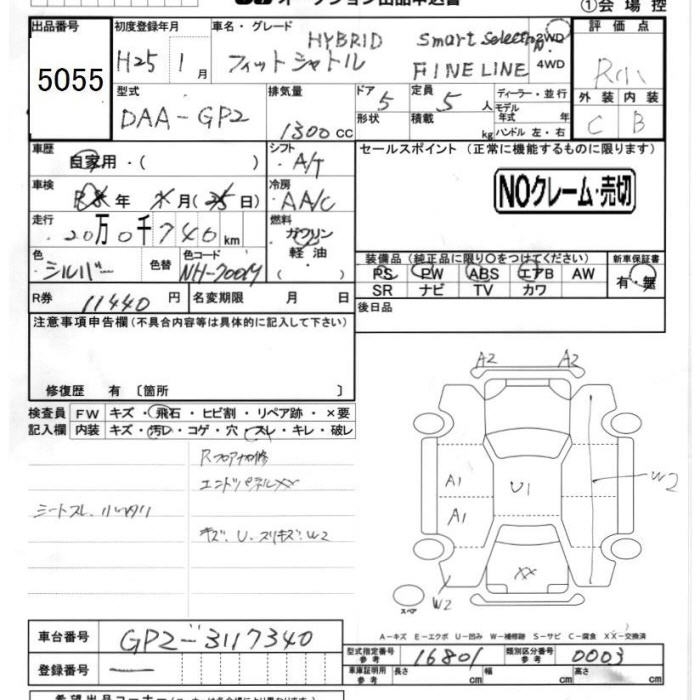 オークション出品申込書
①会場控
出品番号 5055
初度登録年月 H25年 1月
車名・グレード HYBRID Smart Selection
フィットシャトル FINE LINE
2WD
4WD
評価点
R
外装 内装
C B
型式 DAA-GP2
排気量 1300cc
ドア 5
定員 5人
ディーラー・並行
モデル年式 年
形状
積載 kg
ハンドル 左・右
車歴 自家用・( )
シフト A/T
セールスポイント (正常に機能するものに限ります)
NOクレーム・売切
車検 年 月( 日)
冷房 AA/C
走行 20万0千740km
燃料 ガソリン
軽油
( )
色 シルバー
色替
色コード NH-700M
装備品 (純正品に限り〇をつけてください)
新車保証書
PS PW ABS エアB AW
有・無
SR ナビ TV カワ
R券 11440円
名変期限 月 日
後日品
注意事項申告欄(不具合内容等は具体的に記入して下さい)
修復歴 有〔箇所 〕
検査員 FW キズ・飛石・ヒビ割・リペア跡・×要
記入欄 内装 キズ・汚レ・コゲ・穴・スレ・キレ・破レ
Rフロア
エンドパネルXX
シートスレ、
キズ、U、スリキズ、W2
A2 A2
A1
A1
U1
W2
XX
W2
スペア
A-キズ E-エクボ U-凹み W-補修跡 S-サビ C-腐食 XX-交換済
車台番号 GP2-3117340
登録番号 —
型式指定番号 参考 16801
類別区分番号 参考 0003
車庫証明用 参考 長さ cm 幅 cm 高さ cm
希望出品コーナー